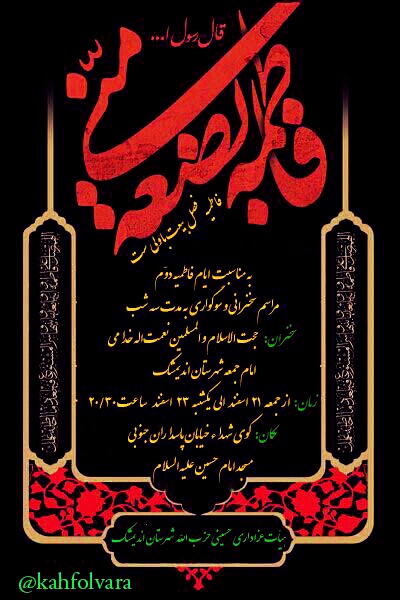 قال رسول ا...
فاطمة بضعة منّي
به مناسبت ایام فاطمیه دوم
مراسم سخنرانی و سوگواری به مدت سه شب
سخنران: حجت الاسلام و المسلمین نعمت اله خدامی
امام جمعه شهرستان اندیمشک
زمان: از جمعه ۲۱ اسفند الی یکشنبه ۲۳ اسفند ساعت ۲۰/۳۰
مکان: کوی شهداء خیابان پاسداران جنوبی
مسجد امام حسین علیه السلام
هیات عزاداری حسینی حزب الله شهرستان اندیمشک
@kahfolvara